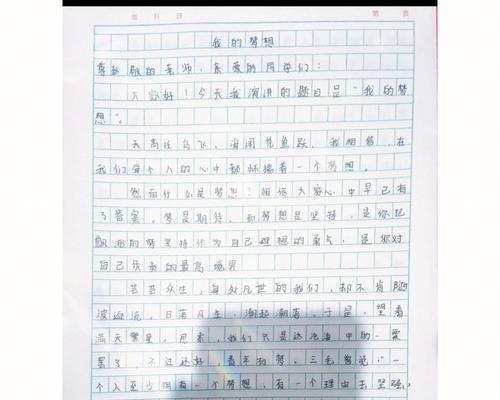 年 月 日 第 页
我的梦想
尊敬的老师，亲爱的同学们：
大家好！今天我演讲的题目是“我的梦
想”。
天高任鸟飞，海阔凭鱼跃，我相信，在
我们每个人的心中都怀揣着一个梦想。
然而什么是梦想？相信大家心中早已有
了答案。梦是期待，而梦想是坚持，是你把
飘渺的梦坚持作为自己理想的勇气，是你对
自己负责的最高境界
芸芸众生，身处凡世的我们，却不肯随
波逐流，日落月生，潮起潮落，于是，望着
满天繁星，思索，我们只是这沧海中的一粟
罢了，不过还好，青年有梦，三毛曾说：“一
个人至少拥有一个梦想，有一个理由去坚强。